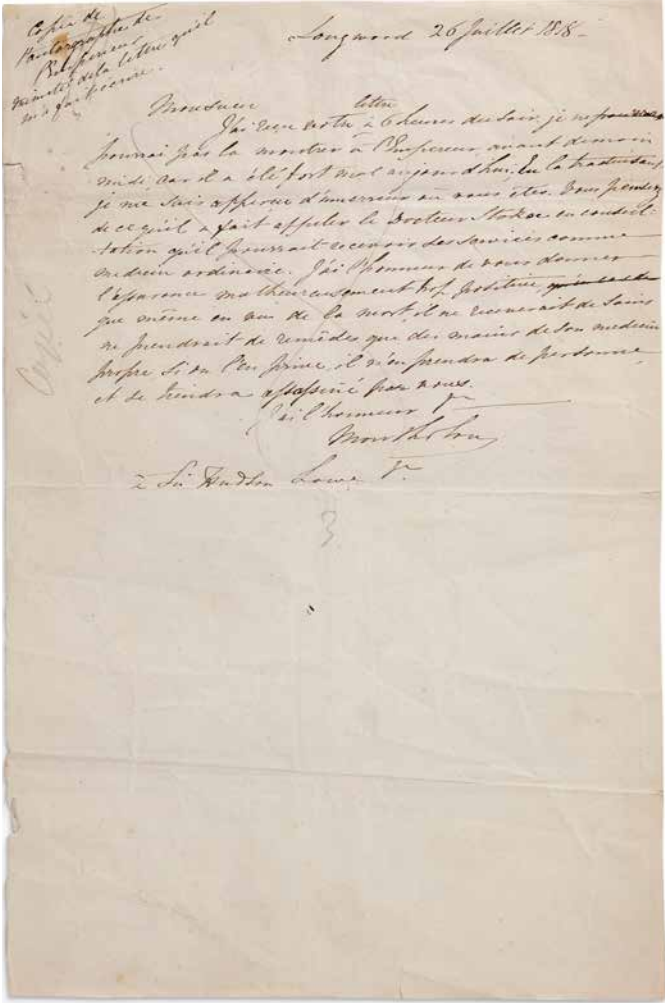 Copie de
l'autographe de
l'Empereur
minute de la lettre qu'il
m'a fait écrire.
Longwood 26 Juillet 1818
Monsieur
lettre
J'ai reçu votre à 6 heures du soir, je ne
pourrai pas la montrer à l'Empereur avant demain
midi car il a été fort mal aujourd'hui. En la traduisant
je me suis apperçu d'une erreur où vous êtes. Vous pensez
de ce qu'il a fait appeler le Docteur Stokoe en consul-
tation qu'il pourrait recevoir ses services comme
medecin ordinaire. J'ai l'honneur de vous donner
l'assurance malheureusement trop positive
que même en vue de la mort, il ne recevrait de soins
ne prendrait de remèdes que des mains de son medecin
propre si on l'en prive, il n'en prendra de personne
et se tiendra assassiné par vous.
J'ai l'honneur
Montholon
à Sir Hudson Lowe
3
Copié